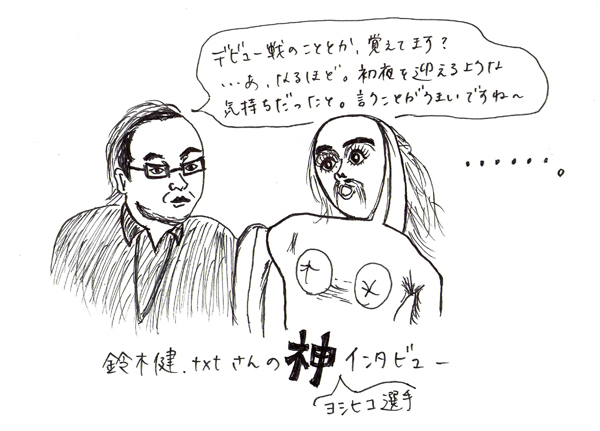 デビュー戦のこととか、覚えてます?
…あ、なるほど。初夜を迎えるような
気持ちだったと。言うことがうまいですね〜
・・・・・・・。
鈴木健.txtさんの神インタビュー
ヨシヒコ選手